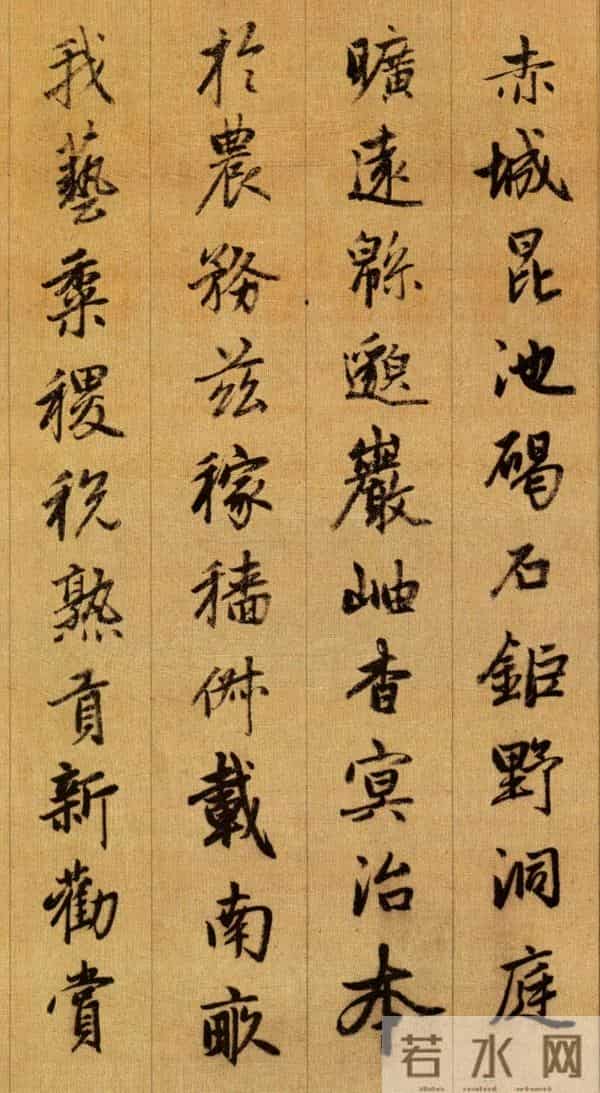 赤城昆池碣石鉅野洞庭
曠遠緜邈巖岫杳冥治本
於農務茲稼穡俶載南畝
我藝黍稷稅熟貢新勸賞
若水网